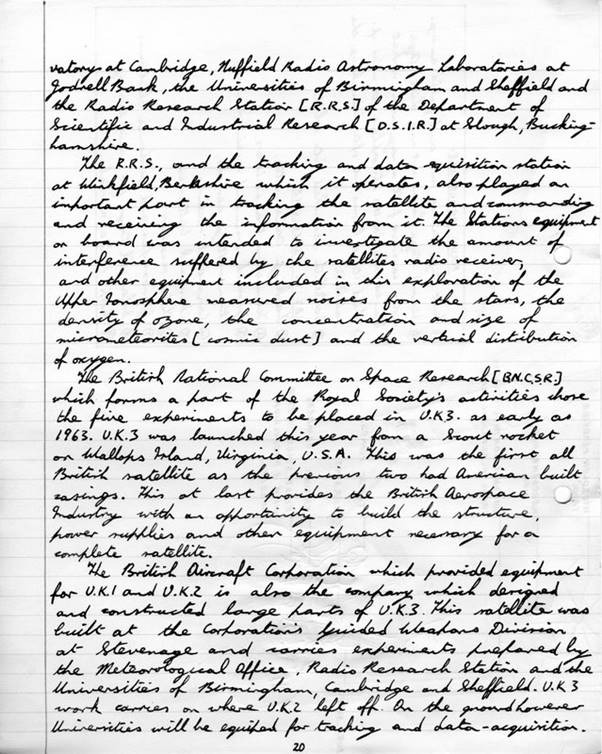 vatory at Cambridge, Nuffield Radio Astronomy Laboratories at
Jodrell Bank, the Universities of Birmingham and Sheffield and
the Radio Research Station [R.R.S.] of the Department of
Scientific and Industrial Research [D.S.I.R.] at Slough, Bucking-
hamshire.
The R.R.S., and the tracking and data equisition station
at Winkfield, Berkshire which it operates, also played an
important part in tracking the satellite and commanding
and receiving the information from it. The Stations equipment
on board was intended to investigate the amount of
interference suffered by the satellites radio receiver,
and other equipment included in this exploration of the
Upper Ionosphere measured noises from the stars, the
density of ozone, the concentration and size of
micrometeorites [cosmic dust] and the vertical distribution
of oxygen.
The British National Committee on Space Research [B.N.C.S.R.]
which forms a part of the Royal Society's activities chose
the five experiments to be placed in U.K.3. as early as
1963. U.K.3 was launched this year from a Scout rocket
on Wallops Island, Virginia, U.S.A. This was the first all
British satellite as the previous two had American built
casings. This at last provides the British Aerospace
Industry with an opportunity to build the structure,
power supplies and other equipment necessary for a
complete satellite.
The British Aircraft Corporation which provided equipment
for U.K.1 and U.K.2 is also the company which designed
and constructed large parts of U.K.3. This satellite was
built at the Corporation's Guided Weapons Division
at Stevenage and carries experiments prepared by
the Meteorological Office, Radio Research Station and the
Universities of Birmingham, Cambridge and Sheffield. U.K.3
work carries on where U.K.2 left off. On the ground however
Universities will be equiped for tracking and data-acquisition.
20